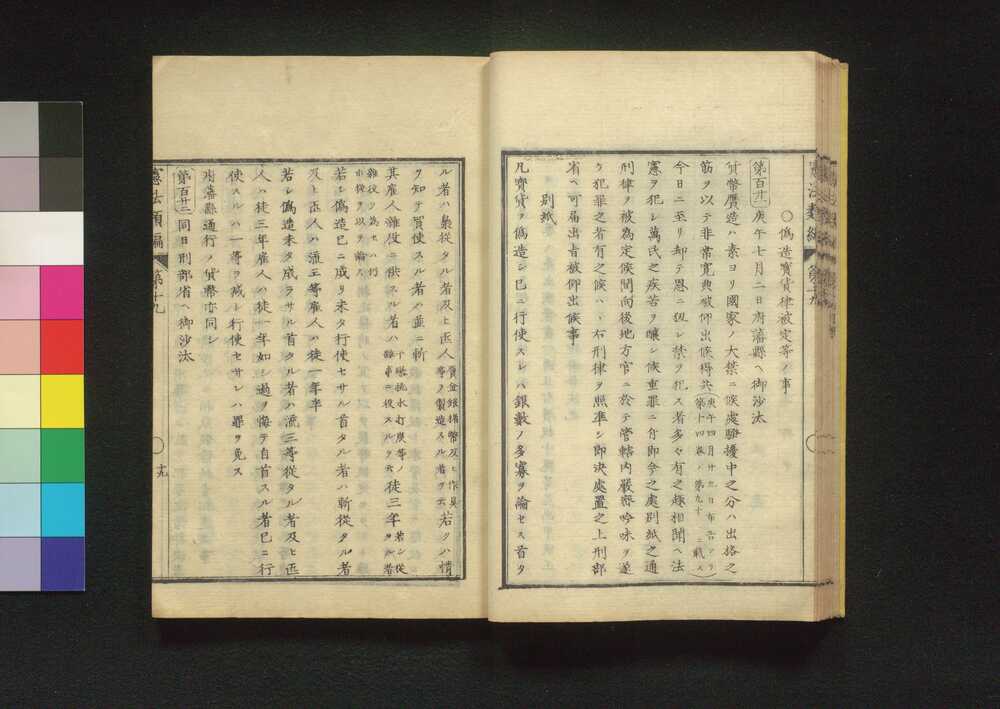 ○偽造寳貨律被定等ノ事
第百廿一 庚午七月二日府藩縣ヘ御沙汰
貨幣贋造ハ素ヨリ國家ノ大禁ニ候處騒擾中之分ハ出格之
筋ヲ以テ非常寛典被仰出候得共
庚午四月廿九日布告ツリ
第十四巻ノ第九十三載ス
今日ニ至リ却テ恩ニ狃レ禁ヲ犯ス者多々有之趣相聞ヘ法
憲ヲ犯シ萬民之疾苦ヲ醸シ候重罪ニ付即今之處別紙之通
刑律ヲ被為定候間向後地方官ニ於テ管轄内嚴密吟味ヲ遂
ケ犯罪之者有之候ハヽ右刑律ヲ照準シ即決處置之上刑部
省ヘ可届出旨被仰出候事
別紙
凡寳貨ヲ偽造シ已ニ行使スレハ銀數ノ多寡ヲ論セス首タ
ル者ハ梟從タル者及ヒ匠人
寳金銀楮幣及ヒ作具
等ヲ製造スル者ヲ云
若クハ情
ヲ知テ買使スル者ハ並ニ斬
其雇人雜役ニ供スル者ハ
汲挑水打炭等ノ
雜事ニ役スルヲ云
徒三年
若シ從タル者
雜役ヲ為セハ仍
ホ從ヲ以テ論ス
若シ偽造已ニ成リ未タ行使セサル首タル者ハ斬從タル者
及ヒ匠人ハ流三等雇人ハ徒一年半
若シ偽造未タ成ラサル首タル者ハ流三等從タル者及ヒ匠
人ハ徒三年雇人ハ徒一年如シ過ヲ悔テ自首スル者已ニ行
使スルハ一等ヲ減シ行使セサレハ罪ヲ免ス
府藩縣通行ノ貨幣亦同シ
第百廿二 同日刑部省ヘ御沙汰
憲法類編 第十九
十九